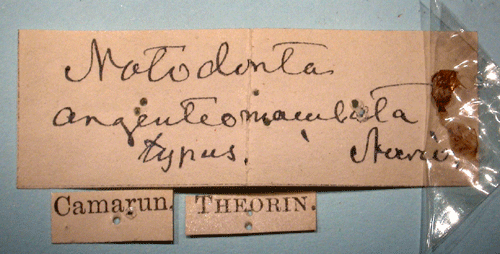 Notodonta
argenteomaculata
typus.
Camarun.
THEORIN.